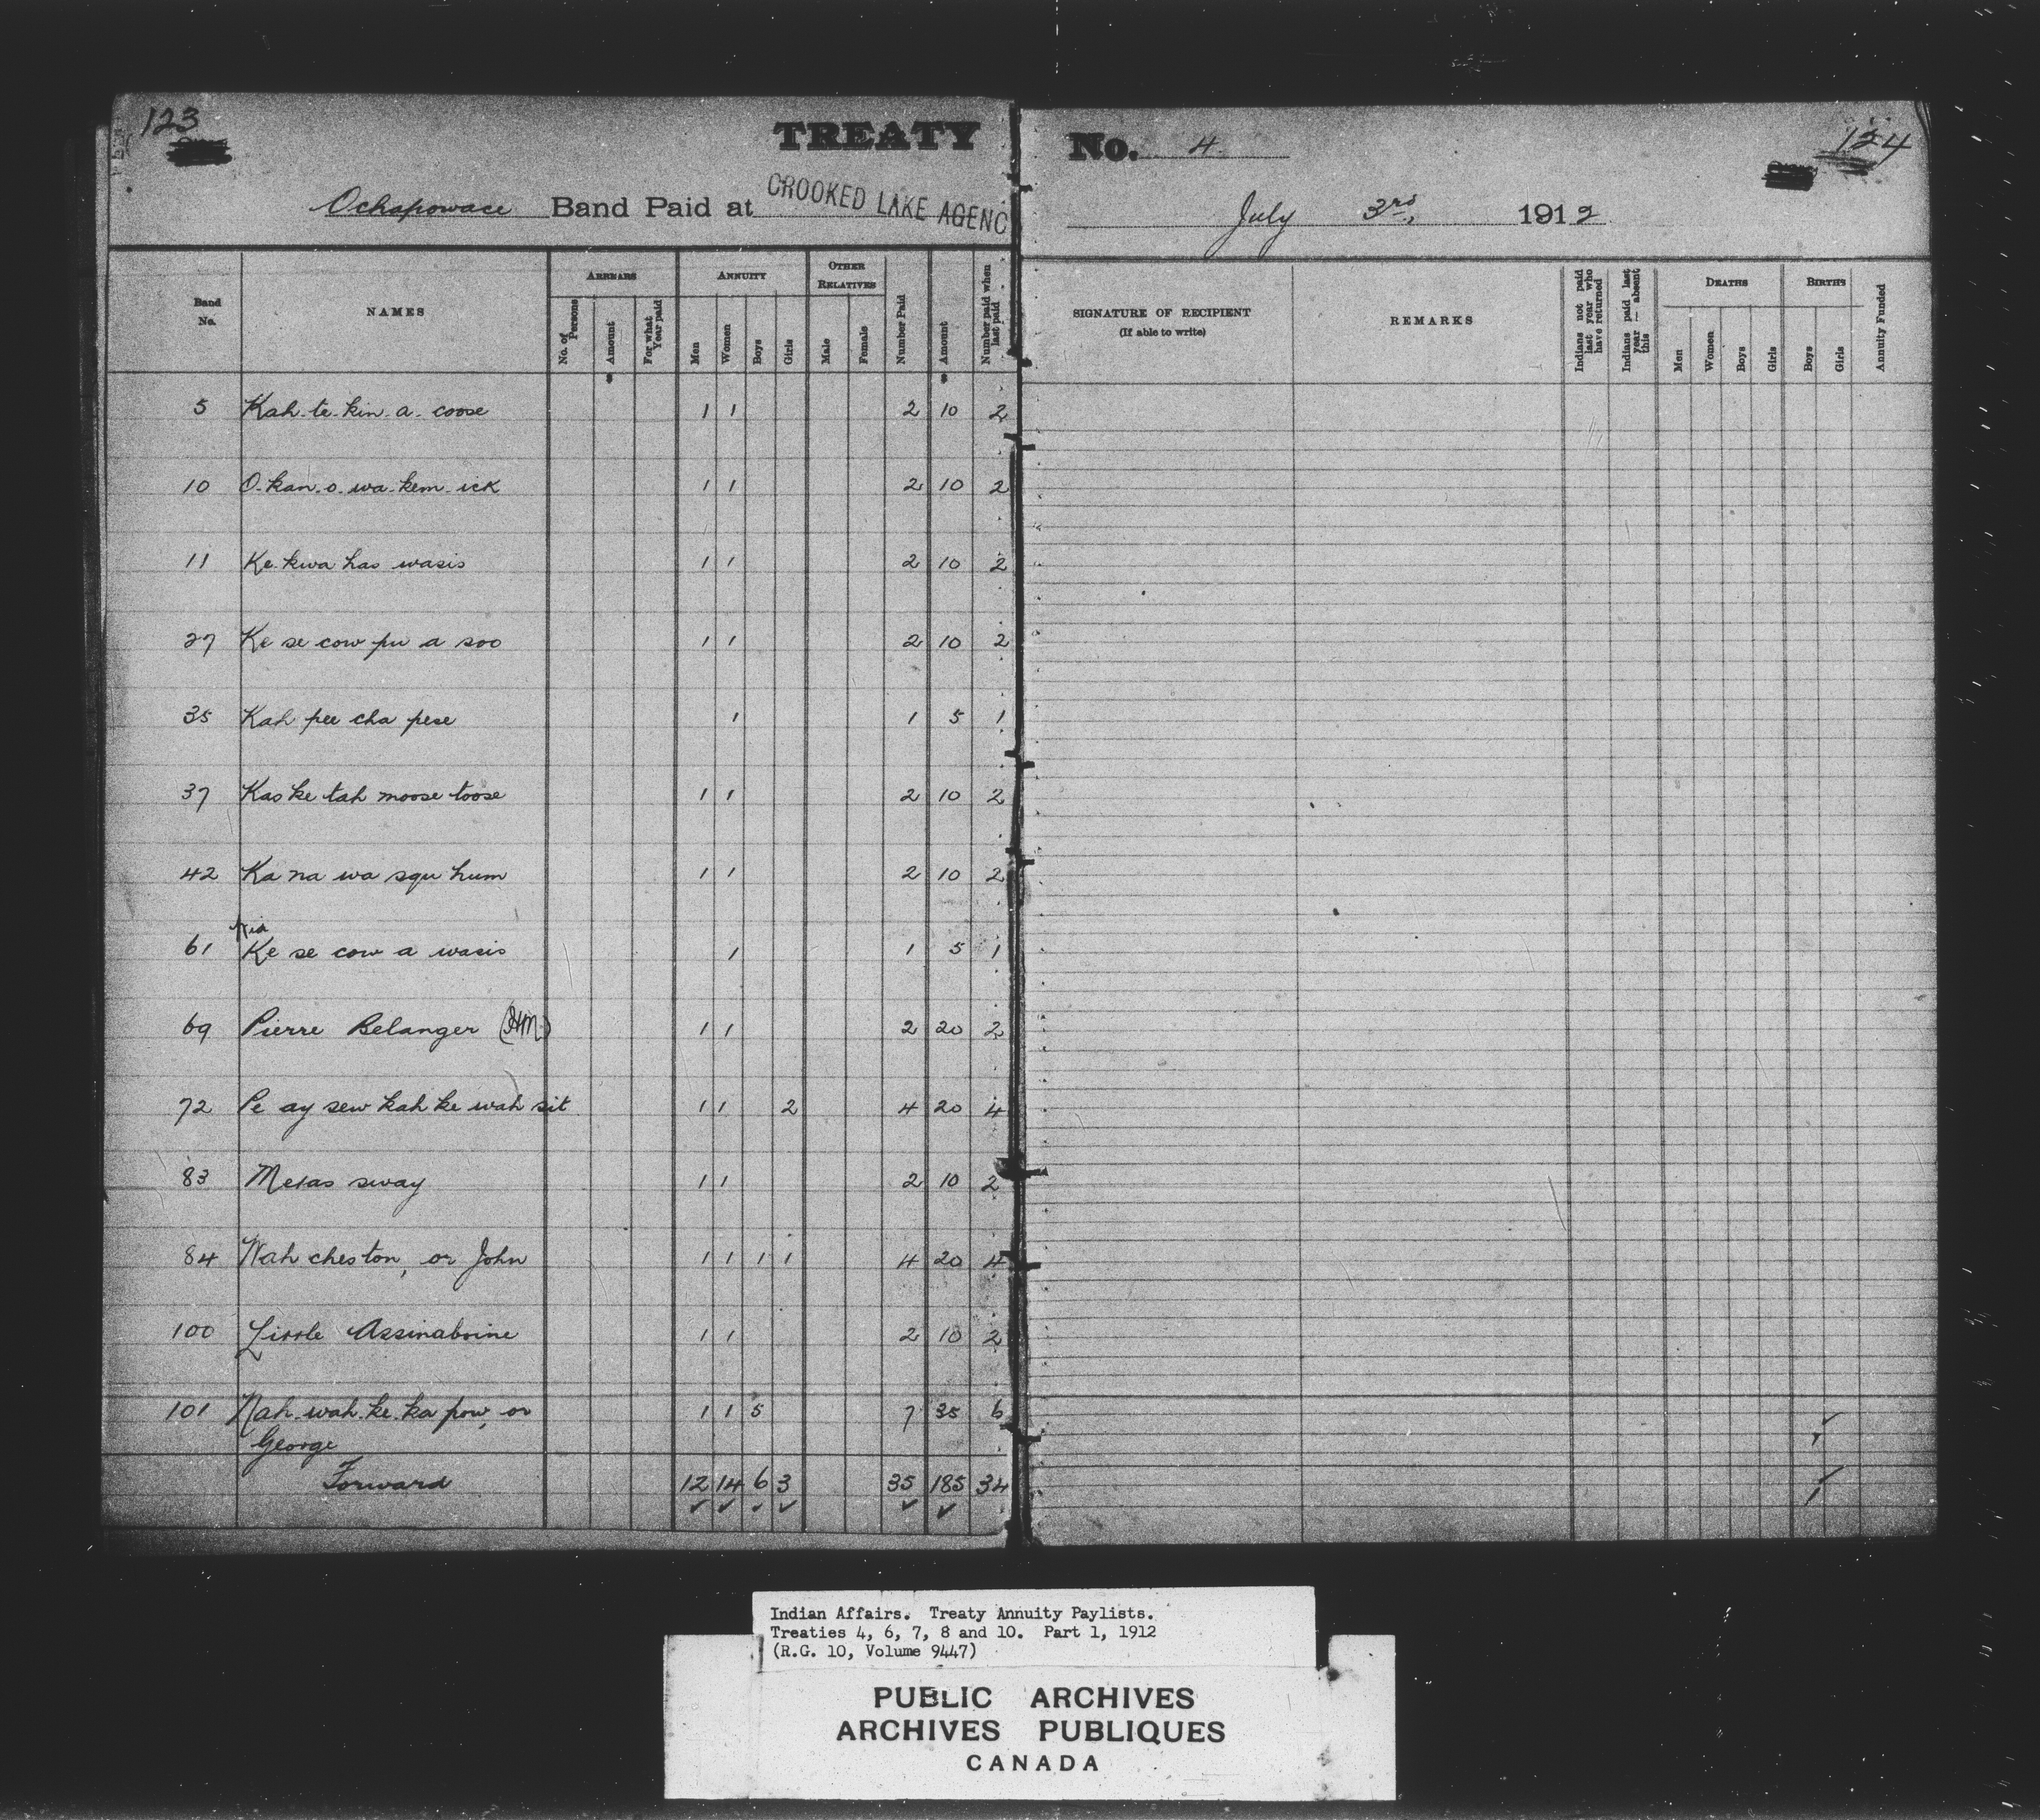 123
TREATY No. 4
124
Ochapowace Band Paid at CROOKED LAKE AGENC July 3rd, 1912
Band No.
NAMES
ARREARS
No. of Persons
Amount
For what Year paid
ANNUITY
Men
Women
Boys
Girls
OTHER RELATIVES
Male
Female
Number Paid
Amount
Number paid when last paid
SIGNATURE OF RECIPIENT
(If able to write)
REMARKS
Indians not paid last year who have returned
Indians paid last year — absent this
DEATHS
Men
Women
Boys
Girls
BIRTHS
Boys
Girls
Annuity Funded
5 Kah-te-kin-a-coose 1 1 2 10 2
10 O-kan-o-wa-kem-ick 1 1 2 10 2
11 Ke-kwa has wasis 1 1 2 10 2
27 Ke se cow pu a soo 1 1 2 10 2
35 Kah pee cha pese 1 1 5 1
37 Kas ke tah moose toose 1 1 2 10 2
42 Ka na wa squ hum 1 1 2 10 2
61 Ke se cow a wasis 1 1 5 1
69 Pierre Belanger (HM) 1 1 2 20 2
72 Pe ay sew kah ke wah sit 1 1 2 4 20 4
83 Metas sway 1 1 2 10 2
84 Wah cheston, or John 1 1 1 1 4 20 4
100 Little Assinaboine 1 1 2 10 2
101 Nah-wah-ke-ka pow, or 1 1 5 7 35 6
George
Forward 12 14 6 3 35 185 34
Indian Affairs. Treaty Annuity Paylists.
Treaties 4, 6, 7, 8 and 10. Part 1, 1912
(R.G. 10, Volume 9447)
PUBLIC ARCHIVES
ARCHIVES PUBLIQUES
CANADA